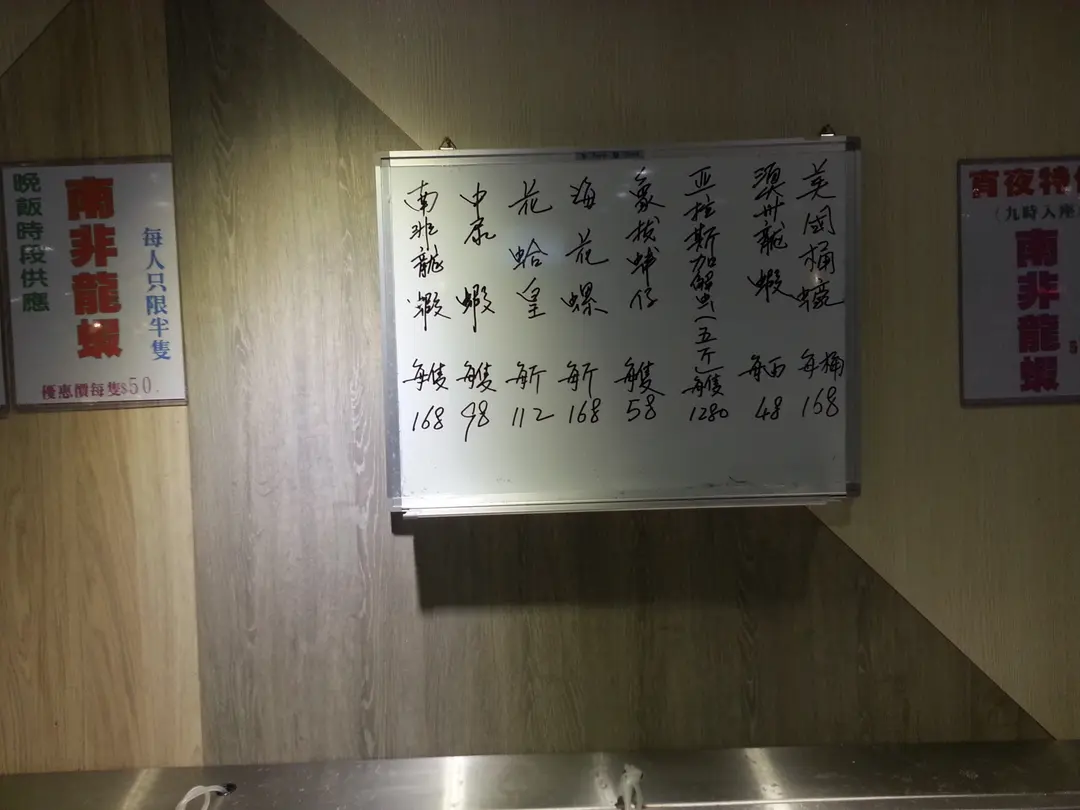 晚飯時段供應
南非龍蝦
每人只限半隻
優惠價每隻$50.
南非龍蝦 每隻 168
中 蝦 每隻 98
花蛤皇 每斤 112
海花螺 每斤 168
象拔蚌仔 每隻 58
亚拉斯加蟹(五斤) 每隻 1280
澳州龍蝦 每両 48
美國桶蠔 每桶 168
宵夜特
(九時入座
南非龍蝦
$